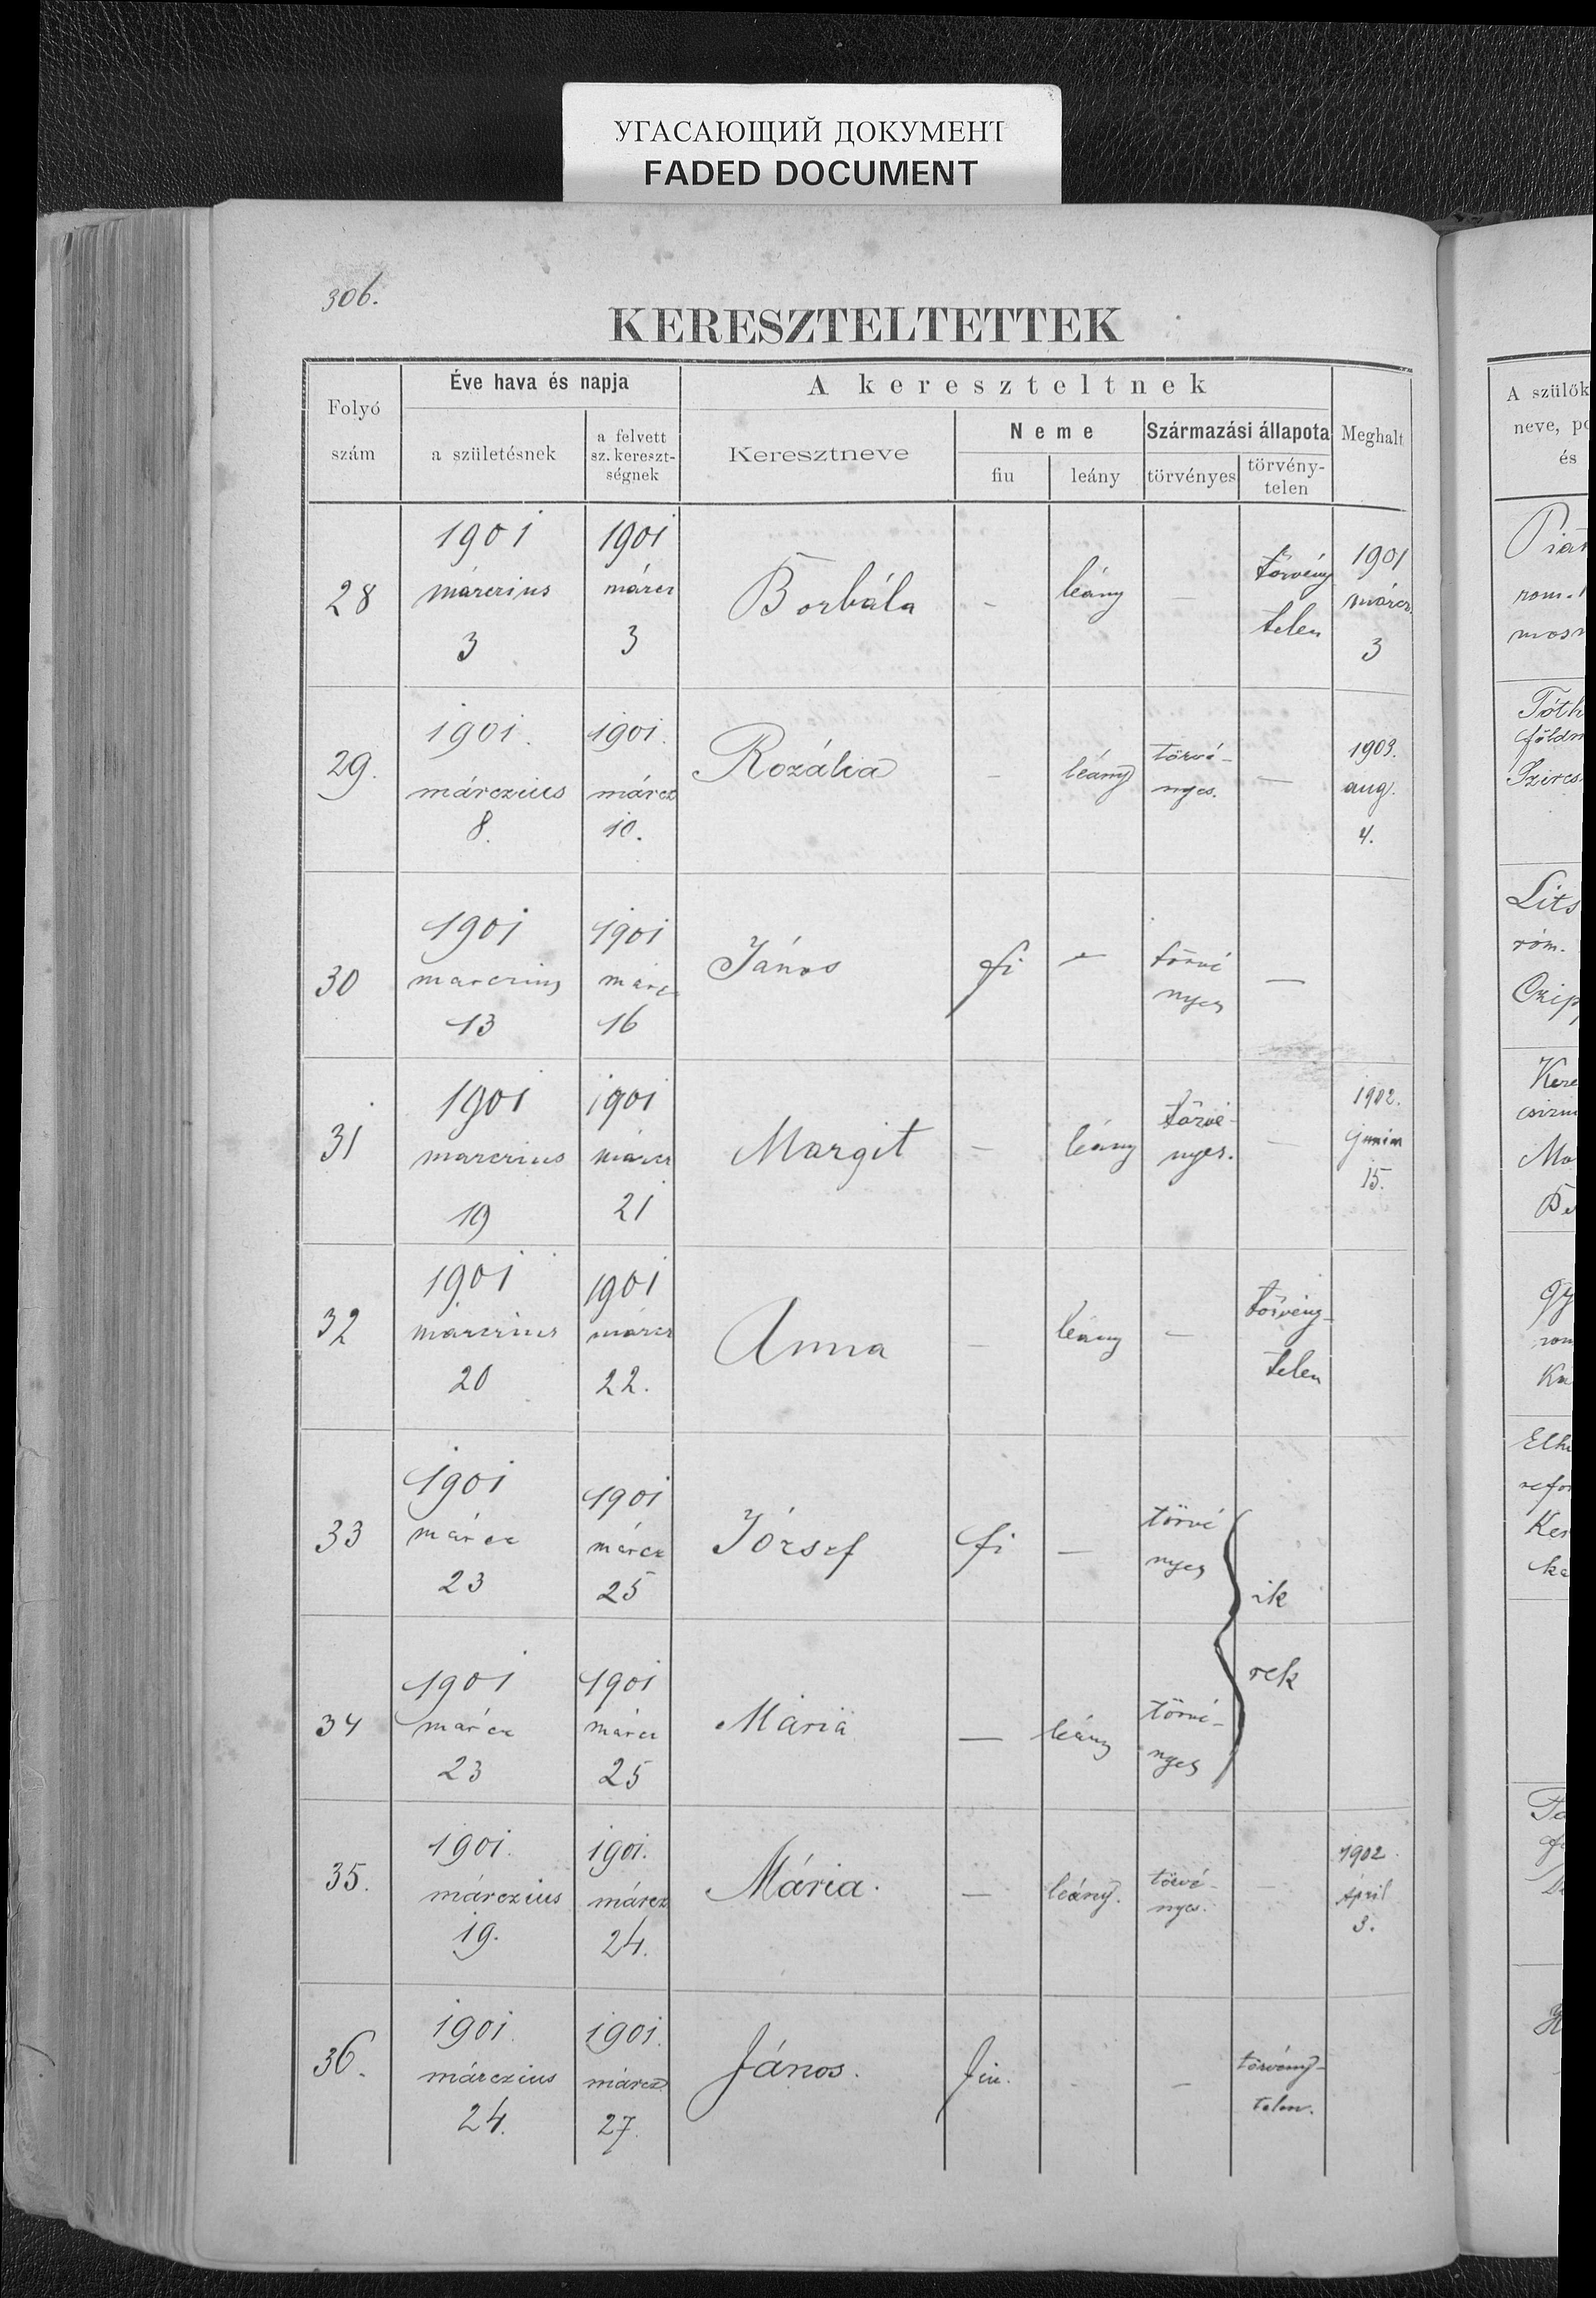 УГАСАЮЩИЙ ДОКУМЕНТ
FADED DOCUMENT
306.
KERESZTELTETTEK
Folyó
szám
Éve hava és napja
a születésnek
a felvett
sz. kereszt-
ségnek
A kereszteltnek
Keresztneve
Neme
fiu
leány
Származási állapota
törvényes
törvény-
telen
Meghalt
A szülők
neve,
és
28
1901
márczius
3
1901
márcz
3
Borbála
-
leány
-
törvény
telen
1901
márcz.
3
29.
1901.
márczius
8.
1901.
márcz
10.
Rozália
-
leány
törvé-
nyes.
-
1903.
aug.
4.
30
1901
marczius
13
1901
márcz
16
János
fi
-
törvé
nyes
-
31
1901
marczius
19
1901
márcz
21
Margit
-
leány
törvé-
nyes.
-
1902.
junius
15.
32
1901
marczius
20
1901
márcz
22.
Anna
-
leány
-
törvény-
telen
33
1901
márcz
23
1901
márcz
25
József
fi
-
törvé
nyes
ik
rek
34
1901
márcz
23
1901
márcz
25
Mária
-
leány
törvé-
nyes
35.
1901.
márczius
19.
1901.
márcz
24.
Mária.
-
leány.
törvé-
nyes.
-
1902.
April
3.
36.
1901.
márczius
24.
1901.
márcz
27.
János.
fiu.
-
-
törvény-
telen.
Tóth
földm
Lits
róm.